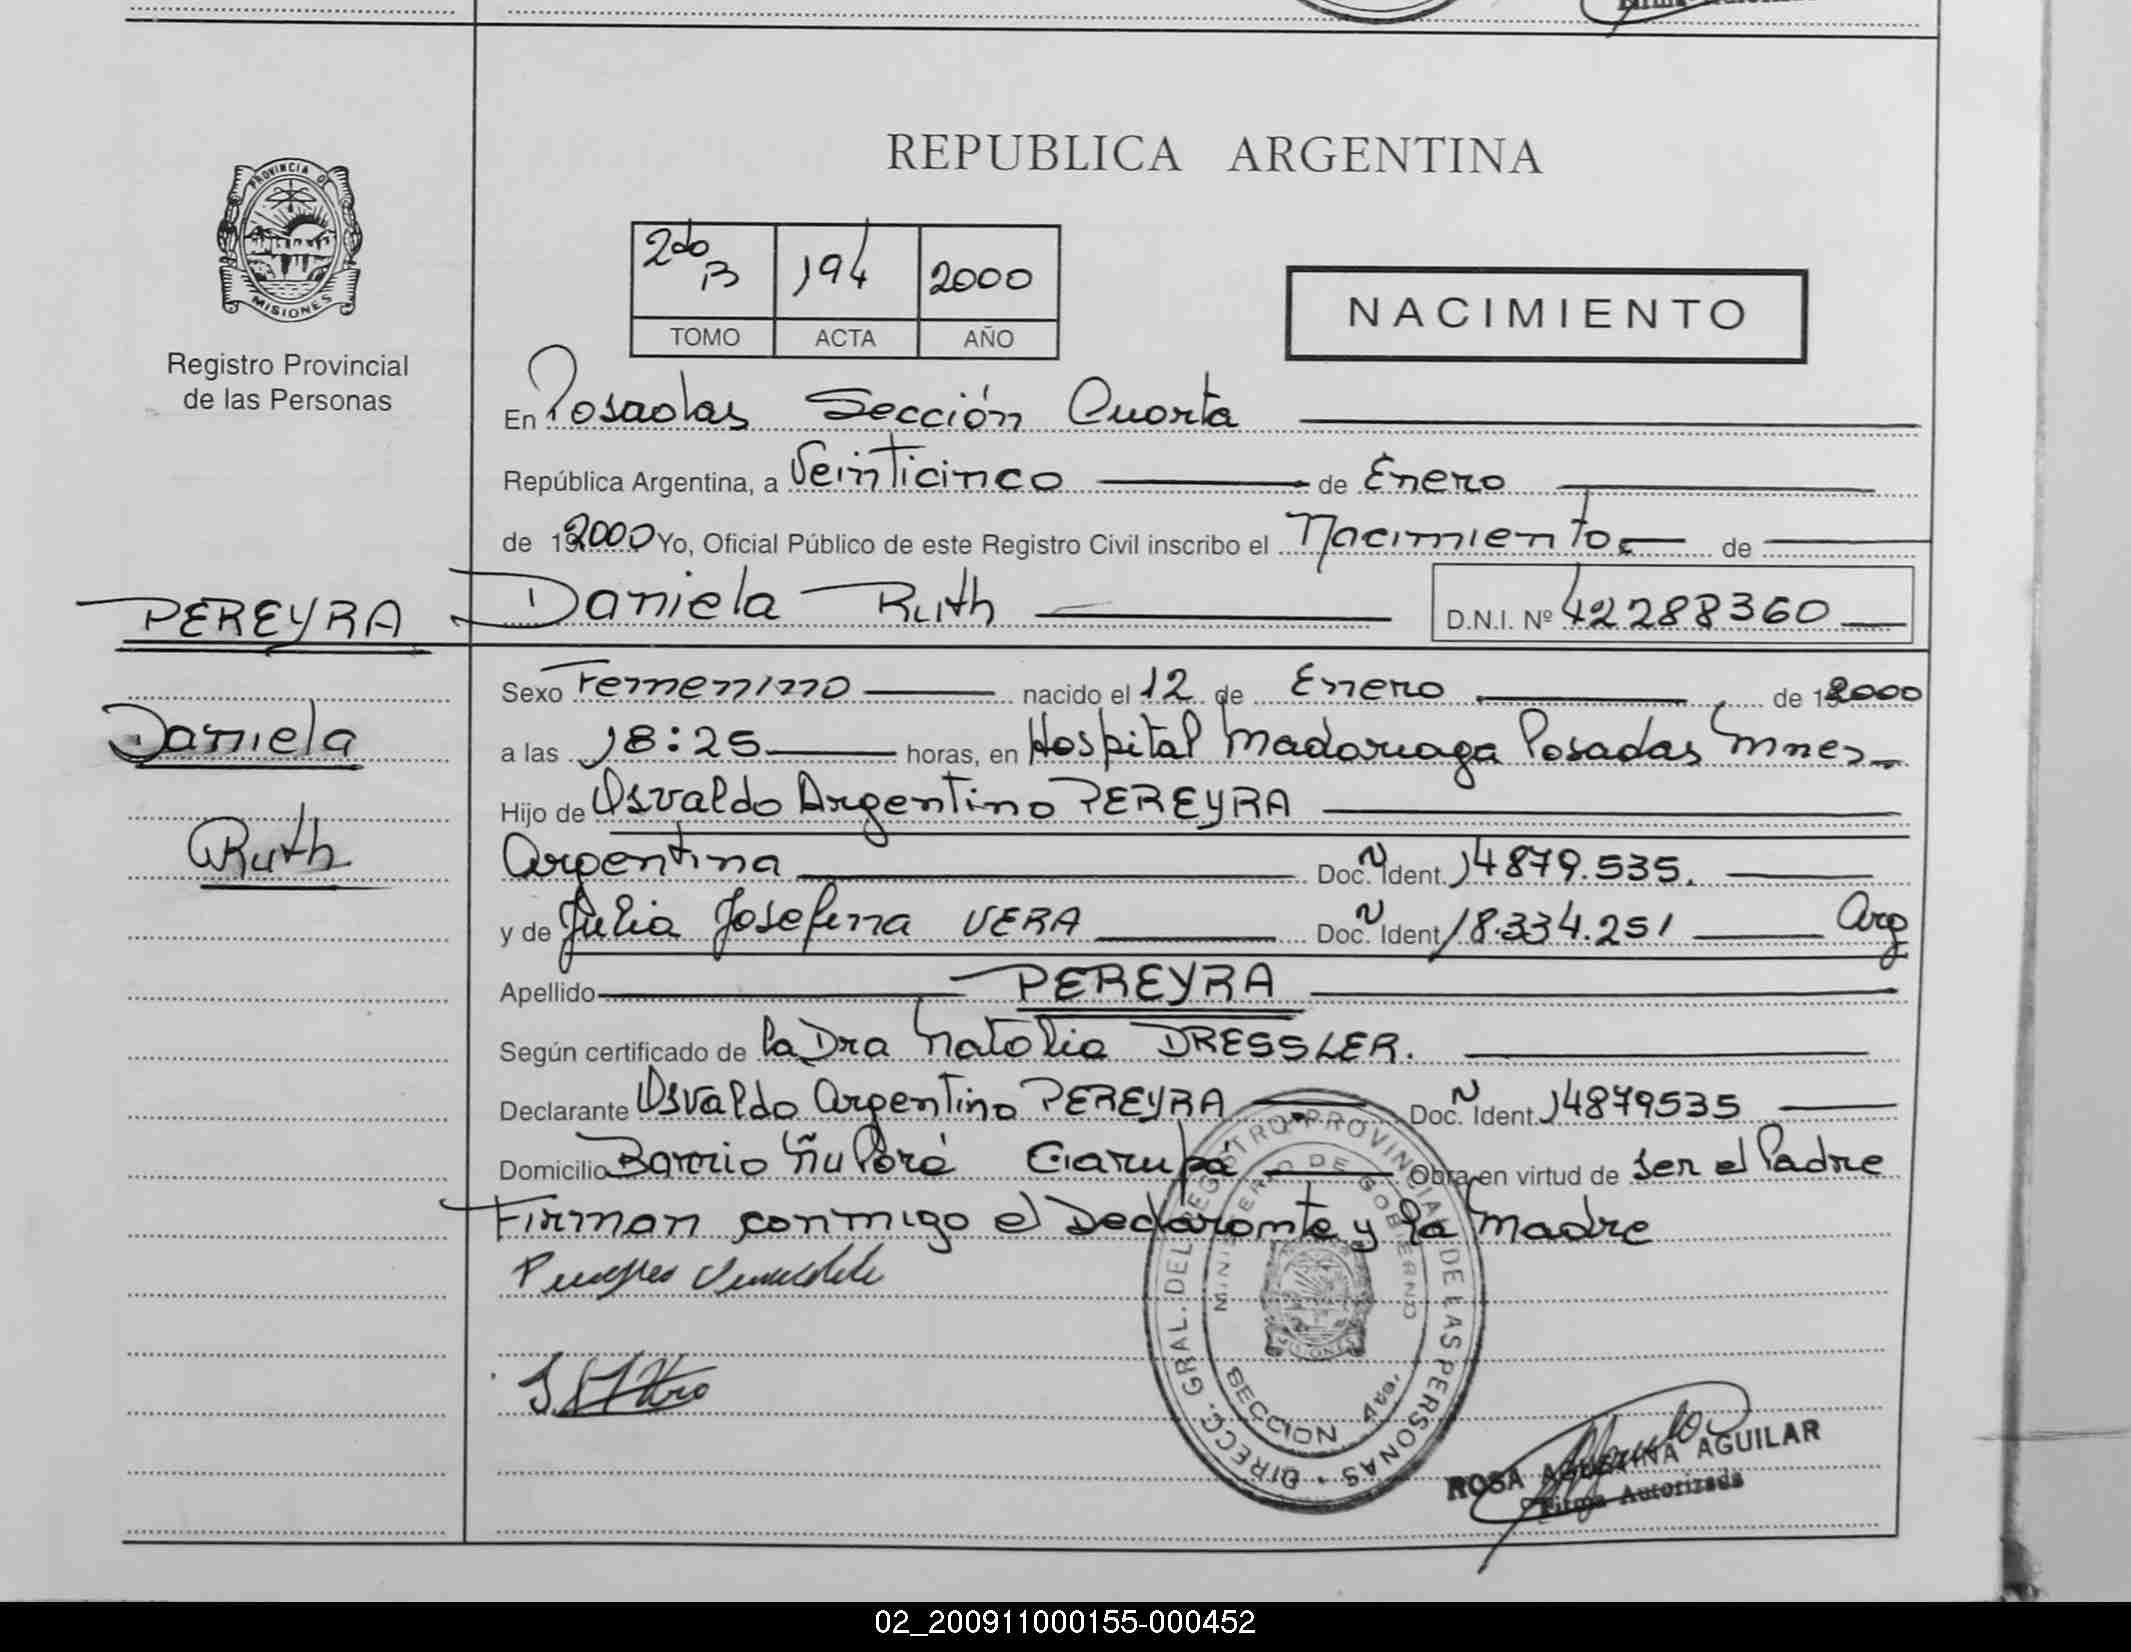 REPUBLICA ARGENTINA
PROVINCIA DE
MISIONES
Registro Provincial
de las Personas
2do B 194 2000
TOMO ACTA AÑO
NACIMIENTO
En Posadas Sección Cuarta
República Argentina, a Veinticinco de Enero
de 192000 Yo, Oficial Público de este Registro Civil inscribo el Nacimiento de
PEREYRA Daniela Ruth D.N.I. Nº 42288360
Daniela
Ruth
Sexo Femenino nacido el 12 de Enero de 2000
a las 18:25 horas, en Hospital Madariaga Posadas Mnes
Hijo de Osvaldo Argentino PEREYRA
Argentina Doc. Ident. N 14879.535.
y de Julia Josefina VERA Doc. Ident. N 18.334.251 Arg
Apellido PEREYRA
Según certificado de la Dra Natalia DRESSLER.
Declarante Osvaldo Argentino PEREYRA Doc. Ident. N 14879535
Domicilio Barrio Ñu Porá Garupá Obra en virtud de ser el Padre
Firman conmigo el Declarante y la Madre
DIRECC. GRAL. DEL REGISTRO PROVINCIAL DE LAS PERSONAS
MINISTERIO DE GOBIERNO
SECCION 4ta.
ROSA AGUSTINA AGUILAR
Firma Autorizada
02_200911000155-000452